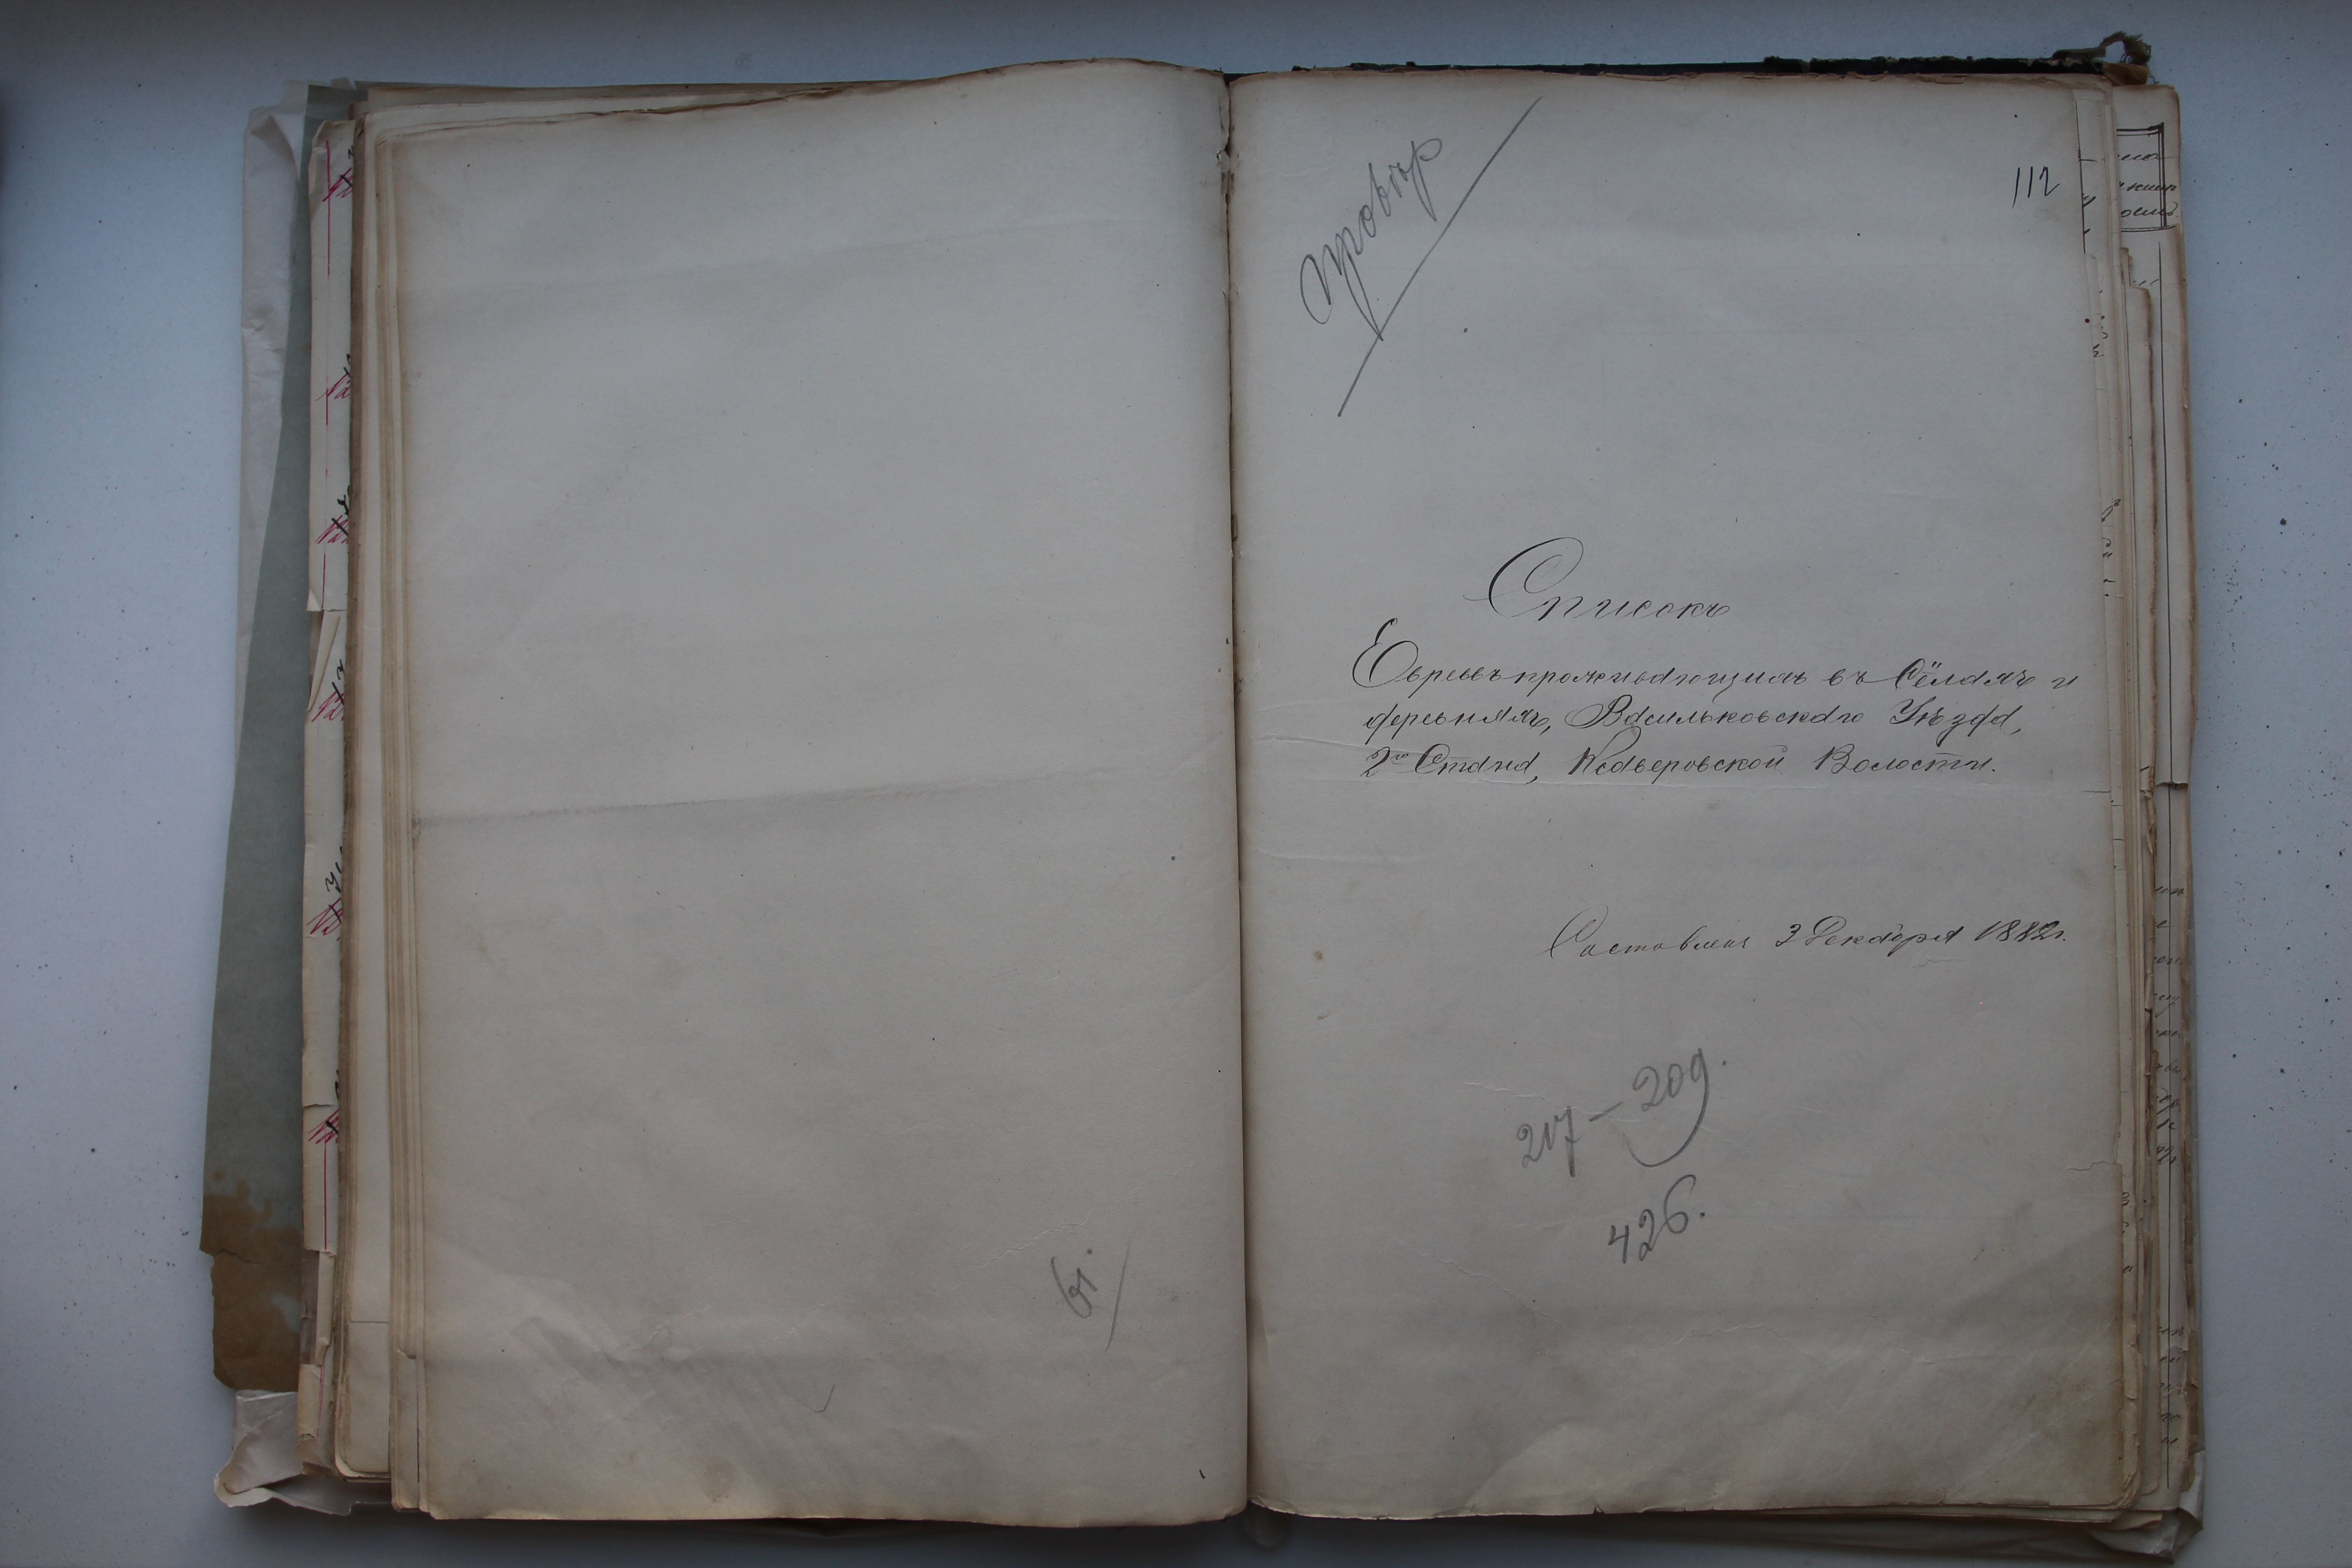 61.
112
провѣр
Списокъ
Евреевъ проживающихъ въ Сёлахъ и
деревняхъ, Васильковскаго Уѣзда,
2го Стана, Ксаверовской Волости.
Составленъ 3 Декабря 1882 г.
217 — 209.
426.